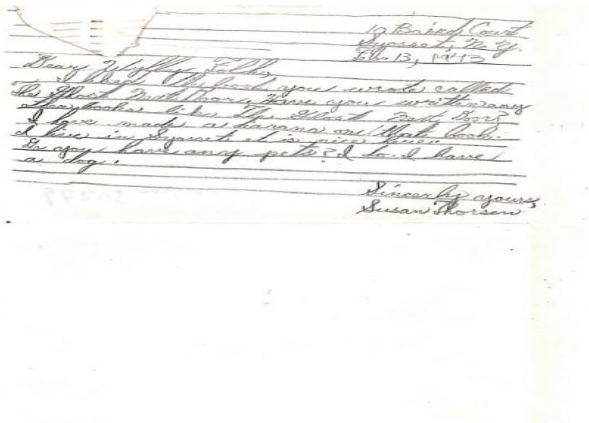 Court
Syosset, N.Y.
13,
Dear Wylly Folk,
I read the book you wrote called
The Ghost Next Door. Have you written any
other books like The Ghost Next Door?
I have made a on that book.
I live in Syosset it is nice here.
Do you have any pets? I do. I have
a dog.
Sincerly yours,
Susan Thorsen